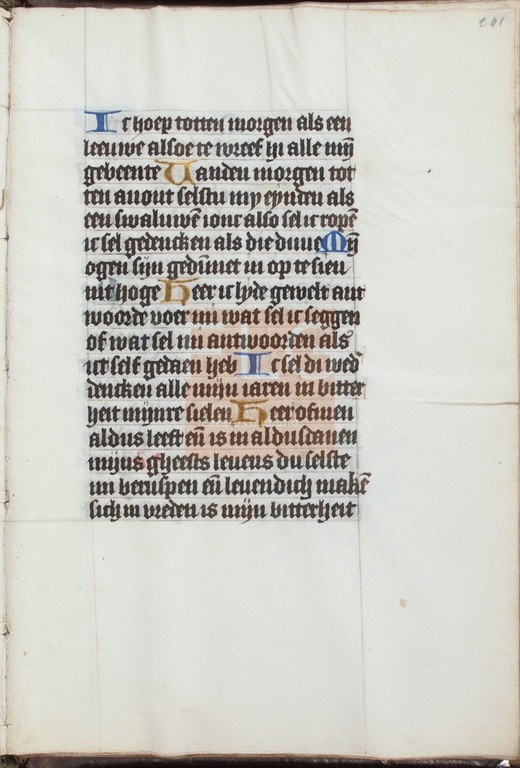 241
Ic hoep totten morgen als een
leeuwe alsoe te wreef hi alle mijn
gebeente Uanden morgen tot
ten auont selstu my eynden als
een swaluwē ionc also sel ic ropē
ic sel gedencken als die duue Mijn
ogen sijn gedūnet in op te sien
nit hoge Heer ic lyde gewelt ant
woorde voer mi wat sel ic seggen
of wat sel mi antwoorden als
ict self gedaen heb Ic sel di wed'
dencken alle mijn iaren in bitter
heit mijnre sielen Heer ofmen
aldus leeft eñ is in aldusdanen
mijns gheests leuens du selste
mi beruspen eñ leuendich makē
sich in vreden is mijn bitterheit